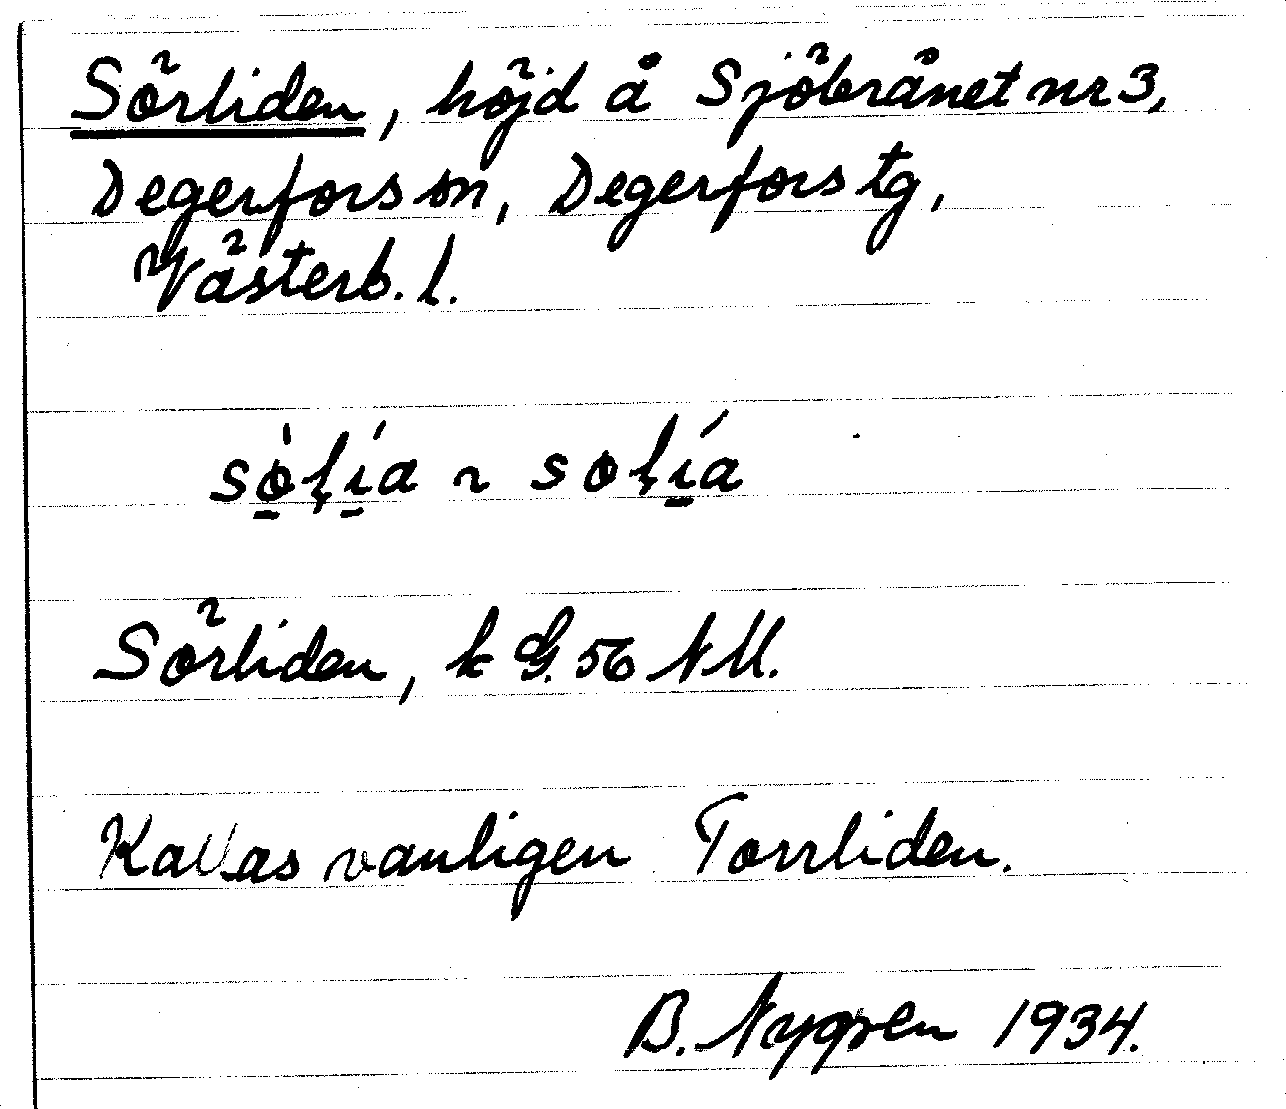 Sörliden, höjd å Sjöbrånet nr 3,
Degerfors sn, Degerfors tg,
Västerb. l.
sò̱lí̱a ~ solí̱a
Sörliden, k G. 56 NM.
Kallas vanligen Torrliden.
B. Nygren 1934.